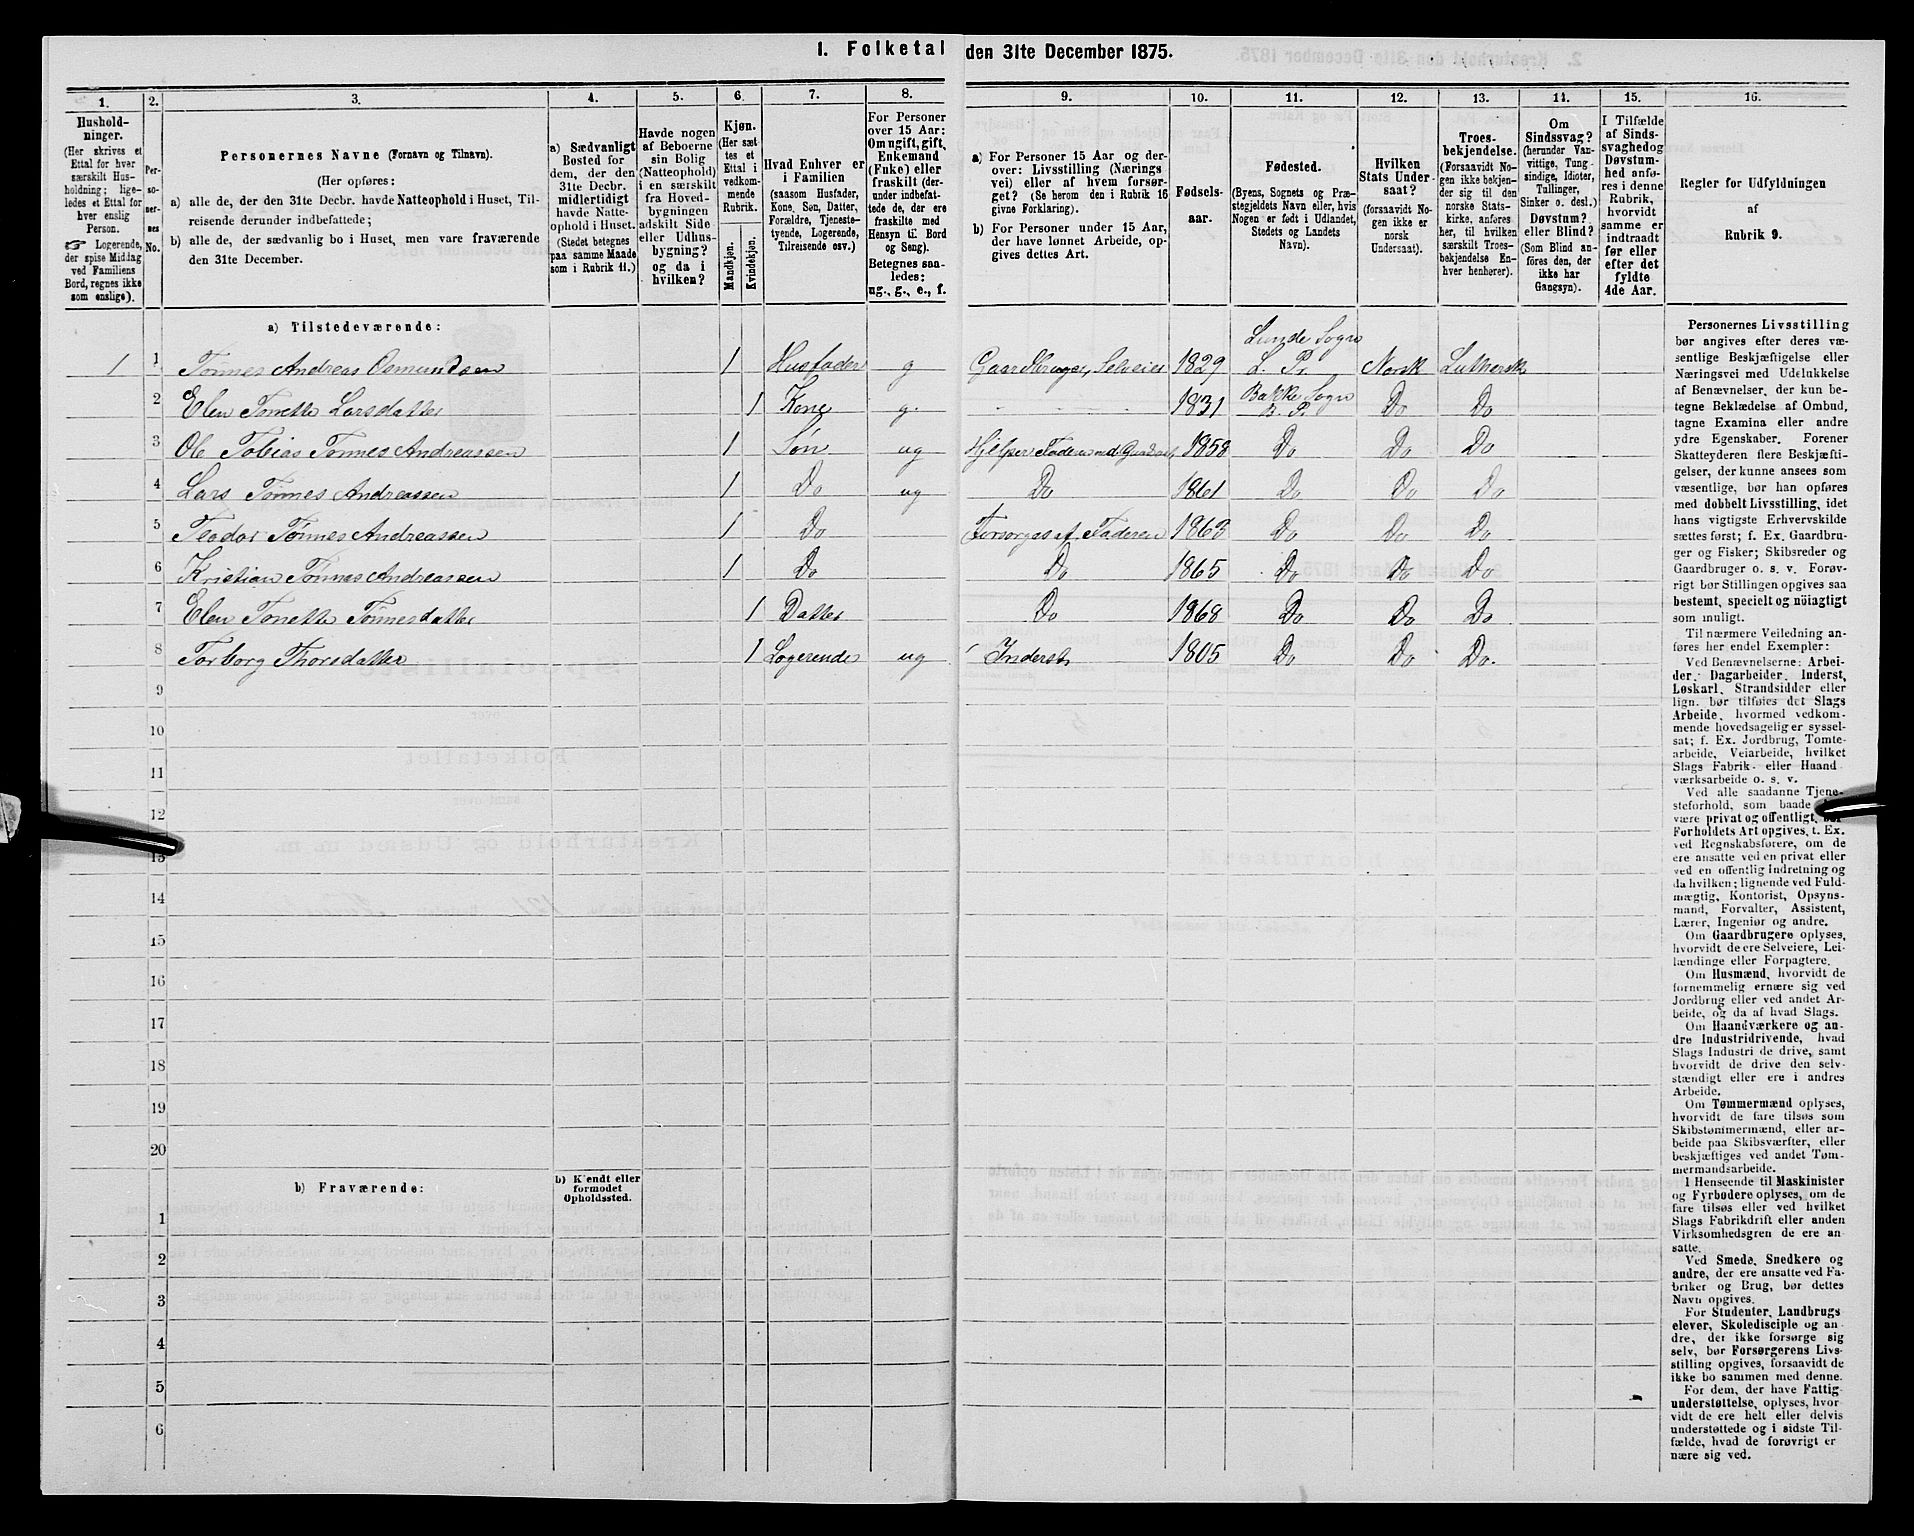 1. Folketal den 31te December 1875.
1. 2. 3. 4. 5. 6. 7. 8. 9. 10. 11. 12. 13. 14. 15. 16.
Hushold-
ninger.
(Her skrives et
Ettal for hver
særskilt Hus-
holdning; lige-
ledes et Ettal for
hver enslig
Person.
☞ Logerende,
der spise Middag
ved Familiens
Bord, regnes ikke
som enslige).
Per-
so-
ner-
nes
No.
Personernes Navne (Fornavn og Tilnavn).
(Her opføres:
a) alle de, der den 31te Decbr. havde Natteophold i Huset, Til-
reisende derunder indbefattede;
b) alle de, der sædvanlig bo i Huset, men vare fraværende
den 31te December.
a) Sædvanligt
Bosted for
dem, der den
31te Decbr.
midlertidigt
havde Natte-
ophold i Huset.
(Stedet betegnes
paa samme Maade
som i Rubrik 11.)
Havde nogen
af Beboerne
sin Bolig
(Natteophold)
i en særskilt
fra Hoved-
bygningen
adskilt Side
eller Udhus-
bygning?
og da i
hvilken?
Kjøn.
(Her sæt-
tes et
Ettal i
vedkom-
mende
Rubrik.
Mandkjøn.
Kvindekjøn.
Hvad Enhver er
i Familien
(saasom Husfader,
Kone, Søn, Datter,
Forældre, Tjeneste-
tyende, Logerende,
Tilreisende osv.)
For Personer
over 15 Aar:
Om ugift, gift,
Enkemand
(Enke) eller
fraskilt (der-
under indbefat-
tede de, der ere
fraskilte med
Hensyn til Bord
og Seng).
Betegnes saa-
ledes:
ug., g., e., f.
a) For Personer 15 Aar og der-
over: Livsstilling (Nærings-
vei) eller af hvem forsør-
get? (Se herom den i Rubrik 16
givne Forklaring).
b) For Personer under 15 Aar,
der have lønnet Arbeide, op-
gives dettes Art.
Fødsels-
aar.
Fødested.
(Byens, Sognets og Præ-
stegjeldets Navn eller, hvis
Nogen er født i Udlandet,
Stedets og Landets
Navn).
Hvilken
Stats Under-
saat?
(forsaavidt No-
gen ikke er
norsk
Undersaat).
Troes-
bekjendelse.
(Forsaavidt No-
gen ikke bekjen-
der sig til den
norske Stats-
kirke, anføres
her, til hvilken
særskilt Troes-
bekjendelse En-
hver henhører).
Om
Sindssvag?
(herunder Van-
vittige, Tung-
sindige, Idioter,
Tullinger,
Sinker o. desl.)
Døvstum?
eller Blind?
(Som Blind an-
føres den, der
ikke har
Gangsyn).
I Tilfælde
af Sinds-
svaghed og
Døvstum-
hed anfø-
res i denne
Rubrik,
hvorvidt
samme er
indtraadt
før eller
efter det
fyldte
4de Aar.
Regler for Udfyldningen
af
Rubrik 9.
a) Tilstedeværende:
1 1 Tønnes Andreas Osmundsen 1 Husfader g Gaardbruger, Selveier 1829 Lunde Sogn L. Pr. Norsk Luthersk
2 Elen Tonette Larsdatter 1 Kone g. 1831 Bakke Sogn B. P. Do Do
3 Ole Tobias Tønnes Andreassen 1 Søn ug Hjelper Faderen md Gaardbr. 1858 Do Do Do
4 Lars Tønnes Andreassen 1 Do ug Do 1861 Do Do Do
5 Teodor Tønnes Andreassen 1 Do Forsørges af Faderen 1863 Do Do Do
6 Kristian Tønnes Andreassen 1 Do Do 1865 Do Do Do
7 Elen Tonette Tønnesdatter 1 Datter Do 1868 Do Do Do
8 Torborg Thorsdatter 1 Logerende ug Inderst 1805 Do Do Do.
9
10
11
12
13
14
15
16
17
18
19
20
b) Fraværende:
b) Kjendt eller
formodet
Opholdssted.
1
2
3
4
5
6
Personernes Livsstilling
bør angives efter deres væ-
sentlige Beskjæftigelse eller
Næringsvei med Udelukkelse
af Benævnelser, der kun be-
tegne Beklædelse af Ombud,
tagne Examina eller andre
ydre Egenskaber. Forener
Skatteyderen flere Beskjæfti-
gelser, der kunne ansees som
væsentlige, bør han opføres
med dobbelt Livsstilling, idet
hans vigtigste Erhvervskilde
sættes først; f. Ex. Gaardbru-
ger og Fisker; Skibsreder og
Gaardbruger o. s. v. Forøv-
rigt bør Stillingen opgives saa
bestemt, specielt og nöiagtigt
som muligt.
Til nærmere Veiledning an-
føres her endel Exempler:
Ved Benævnelserne: Arbei-
der, Dagarbeider, Inderst,
Løskarl, Strandsidder eller
lign. bør tilføies det Slags
Arbeide, hvormed vedkom-
mende hovedsagelig er syssel-
sat; f. Ex. Jordbrug, Tomte-
arbeide, Veiarbeide, hvilket
Slags Fabrik- eller Haand
værksarbeide o. s. v.
Ved alle saadanne Tjene-
steforhold, som baade
være privat og offentligt, bør
Forholdets Art opgives, t. Ex.
ved Regnskabsførere, om de
ere ansatte ved en privat eller
ved en offentlig Indretning og
da hvilken; lignende ved Fuld-
mægtig, Kontorist, Opsyns-
mand, Forvalter, Assistent,
Lærer, Ingeniør og andre.
Om Gaardbrugere oplyses,
hvorvidt de ere Selveiere, Lei-
lændinge eller Forpagtere.
Om Husmænd, hvorvidt de
fornemmelig ernære sig ved
Jordbrug eller ved andet Ar-
beide, og da af hvad Slags.
Om Haandværkere og an-
dre Industridrivende, hvad
Slags Industri de drive, samt
hvorvidt de drive den selv-
stændigt eller ere i andres
Arbeide.
Om Tømmermænd oplyses,
hvorvidt de fare tilsøs som
Skibstømmermænd, eller ar-
beide paa Skibsværfter, eller
beskjæftiges ved andet Tøm-
mermandsarbeide.
I Henseende til Maskinister
og Fyrbødere oplyses, om de
fare tilsøs eller ved hvilket
Slags Fabrikdrift eller anden
Virksomhedsgren de ere an-
satte.
Ved Smede, Snedkere og
andre, der ere ansatte ved Fa-
briker og Brug, bør dettes
Navn opgives.
For Studenter, Landbrugs
elever, Skoledisciple og an-
dre, der ikke forsørge sig
selv, bør Forsørgerens Livs-
stilling opgives, forsaavidt de
ikke bo sammen med denne.
For dem, der have Fattig-
understøttelse, oplyses, hvor-
vidt de ere helt eller delvis
understøttede og i sidste Til-
fælde, hvad de forøvrigt er
nære sig ved.